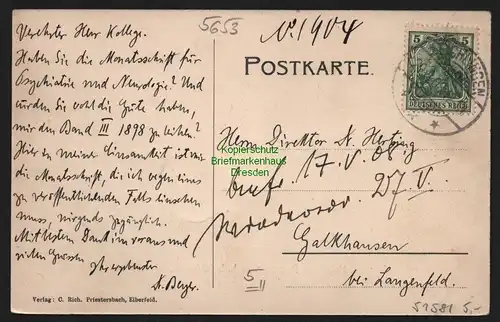 5653
No. 1904
Verehrter Herr Kollege.
Haben Sie die Monatsschrift für
Psychiatrie und Neurologie? Und
würden Sie wohl die Güte haben,
mir den Band III 1898 zu leihen?
Hier in meiner Einsamkeit ist mir
die Monatsschrift, die ich wegen eines
zu veröffentlichenden Falls einsehen
muss, nirgends zugänglich.
Mit bestem Dank im voraus und
vielen Grüssen
Ihr ergebenster
Dr. Beyer.
POSTKARTE.
5
5
DEUTSCHES REICH
Kopierschutz
Briefmarkenhaus
Dresden
Herrn Direktor Dr. Herting
17. V. 08
27 V.
Galkhausen
bei Langenfeld.
5
II
Verlag: C. Rich. Priestersbach, Elberfeld.
51581 5,-